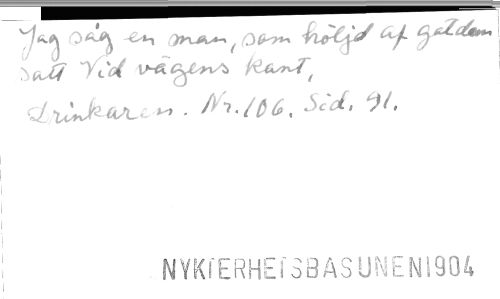 Jag såg en man, som höljd af gatdam
satt vid vägens kant,
Drinkaren. Nr. 106. Sid. 91.
NYKTERHETSBASUNEN1904